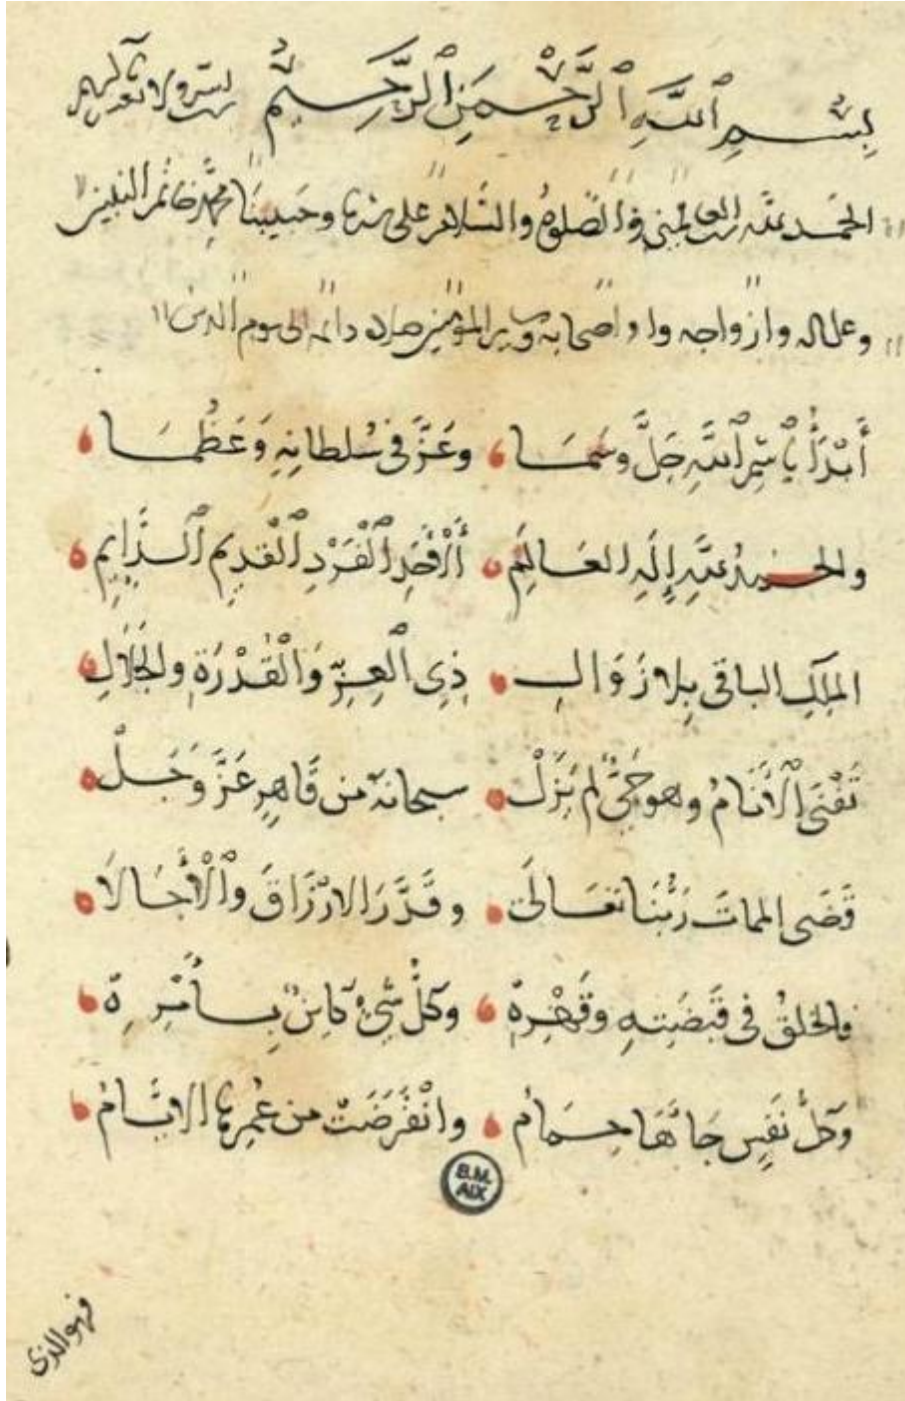 بِسْمِ ٱللَّهِ ٱلرَّحْمَنِ ٱلرَّحِيمِ يسر ولا تعسر
الحمد لله رب العالمين والصلوة والسلام على سيدنا وحبيبنا محمد خاتم النبيين
وعلى اله وازواجه واصحابه وساير المؤمنين صلاة دائمة الى يوم الدين
أَبْدَأُ بِٱسْمِ ٱللَّهِ جَلَّ وَسَمَا وعَزَّ فى سُلطانِهِ وَعَظُمَا
والحمدُ للَّهِ إِلَهِ العَالَمِ ٱلْأَحَدِ ٱلْفَرْدِ ٱلْقَدِيمِ ٱلدَّايِمِ
المَلِكِ الباقى بِلا زَوَالِ ذِى ٱلْعِزِّ وَالْقُدْرَةِ والجَلَالِ
تَفْنَى ٱلْأَنَامُ وهو حَىٌّ لم يَزَلْ سبحانهُ من قَاهِرٍ عَزَّ وَجَلْ
قَضَى المماتَ رَبُّنَا تعَالَى وقَدَّرَ الارْزَاقَ وٱلْأَجَالَا
فالخلقُ فى قَبْضَتِهِ وقَهْرِهْ وكلُّ شَىْءٍ كَايِنٌ بِأَمْرِهْ
وكلُّ نَفْسٍ جَاءَهَا حِمَامُ وانْقَرَضَتْ من عُمْرِها الايَّامُ
B.M.
AIX
فهو الذى